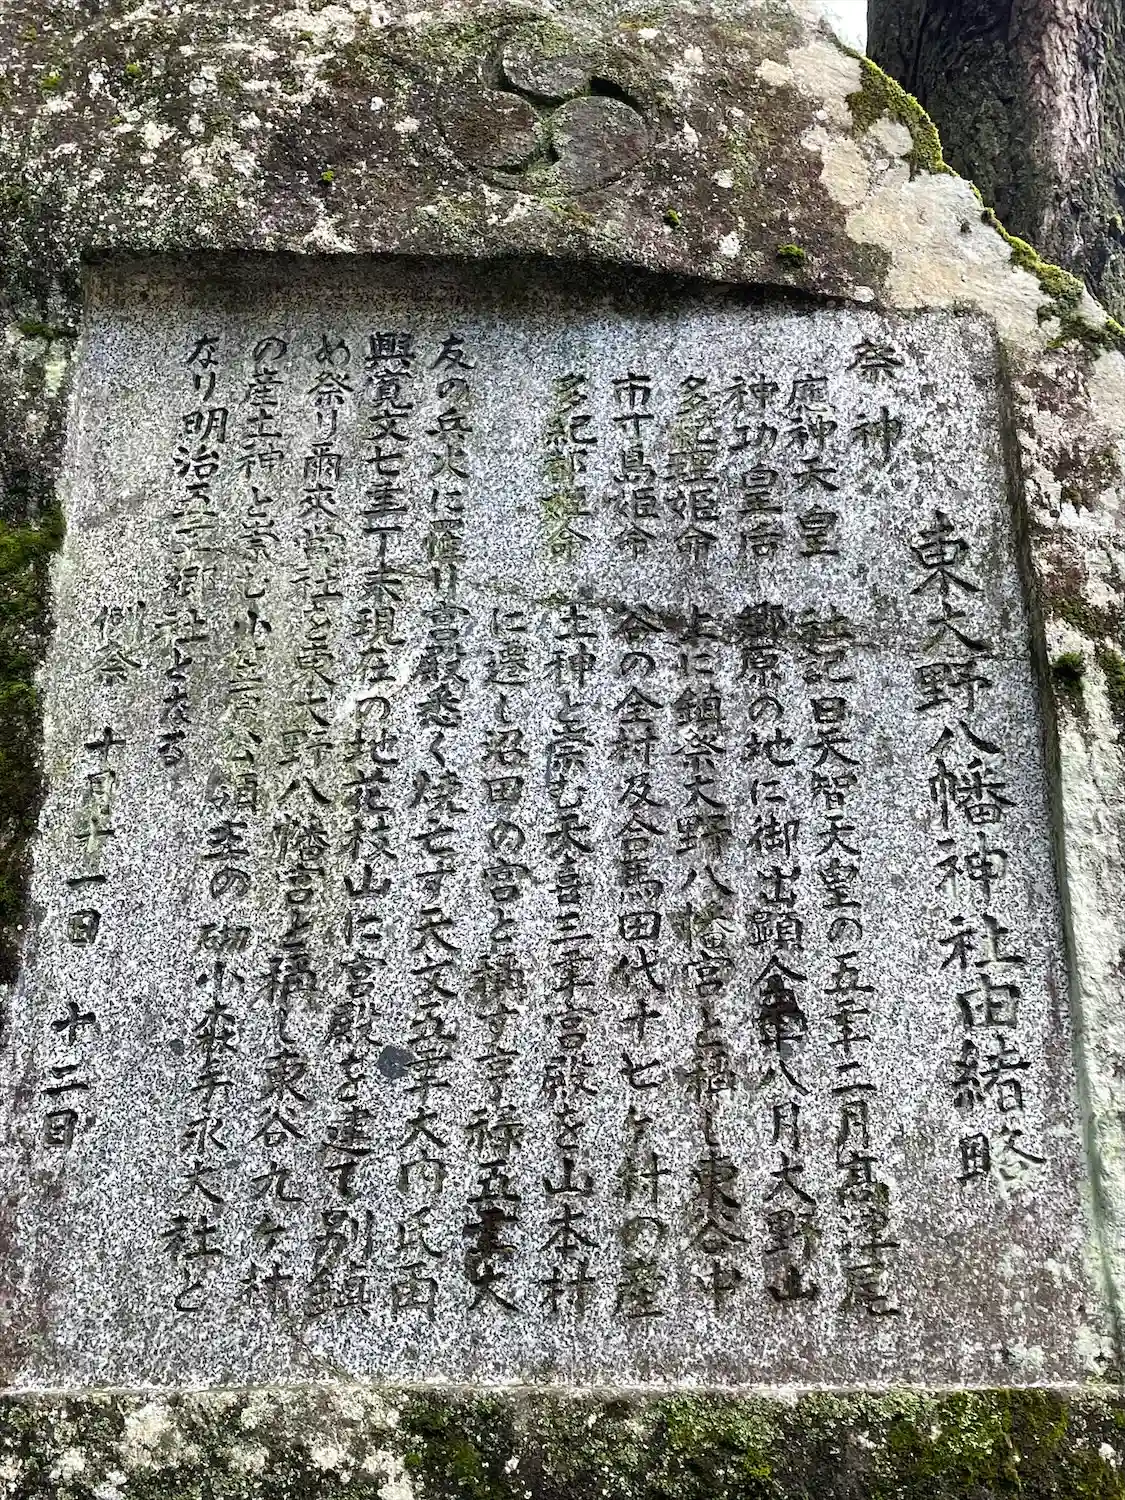 東大野八幡神社由緒略
祭神
應神天皇
神功皇后
多 理姫命
市寸島姫命
多紀 姫命
社記曰天智天皇の五年二月髙津尾
郷原の地に御出顕 年八月大野山
上に鎮祭大野八幡宮と稱し東谷中
谷の全村及合馬田代十七ヶ村の産
土神と崇む天喜三年宮殿を山本村
に遷し沼田の宮と稱す享禄五年大
友の兵火に罹り宮殿悉く焼亡す天文五年大内氏再
興寛文七年丁未現在の地花枝山に宮殿を建て別鎮
め祭り爾来當社を東大野八幡宮と稱し東谷九ヶ村
の産土神と崇む小笠原公酒主の 小森手永大社と
なり明治五年郷社となる
例祭 十月十一日 十三日